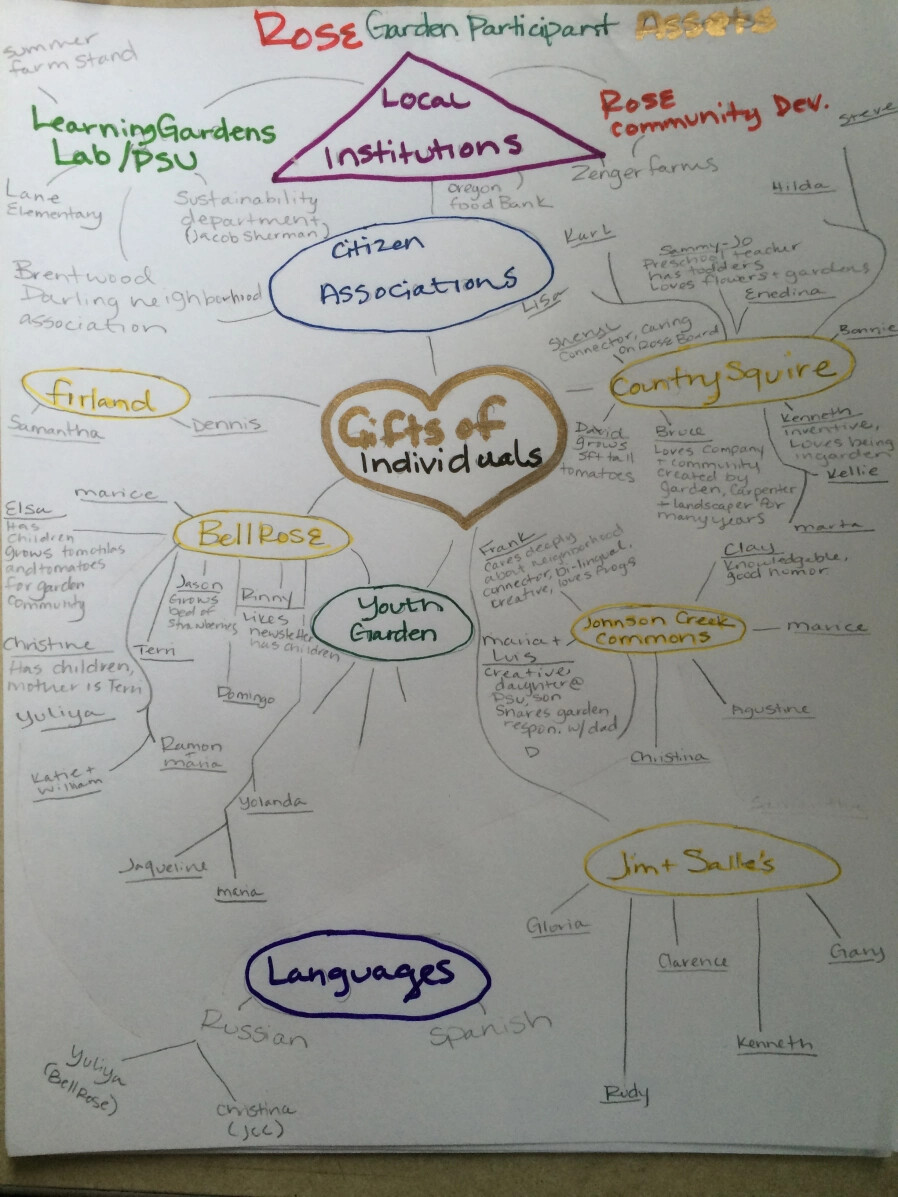 Rose Garden Participant Assets
summer
farm stand
Local
Institutions
Learning Gardens
Lab/PSU
Rose
Community Dev.
Steve
Lane
Elementary
Sustainability
department
(Jacob Sherman)
Oregon
food Bank
Zenger farms
Hilda
Brentwood
Darling neighborhood
association
Citizen
Associations
Kurt
Lisa
Sammy-Jo
Preschool teacher
has toddlers
Loves flowers + gardens
Enedina
Bonnie
Sheryl
Connector, caring
on Rose Board
Country Squire
firland
Samantha
Dennis
Gifts of
Individuals
David
grows
5ft tall
tomatoes
Bruce
Loves company
+ community
created by
garden, Carpenter
+ landscaper for
many years
Kenneth
inventive,
Loves being
in garden
Kellie
marta
marice
Elsa
Has
children
grows tomatillas
and tomatoes
for garden
community
BellRose
Jason
Grows
bed of
strawberries
Likes
newsletter
has children
Youth
Garden
Frank
cares deeply
about neighborhood
connector, bi-lingual,
creative, loves frogs
Clay
Knowledgable,
good humor
Johnson Creek
Commons
marice
Christine
Has children,
mother is Terri
Terri
Yuliya
Domingo
maria +
Luis
creative,
daughter @
PSU, son
Shares garden
respon. w/ dad
D
Agustine
Christina
Katie +
William
Ramon
+
maria
Yolanda
Jaqueline
maria
Samantha
Jim + Salle's
Gloria
Clarence
Gary
Kenneth
Rudy
Languages
Russian
Spanish
Yuliya
(BellRose)
Christina
(JCC)